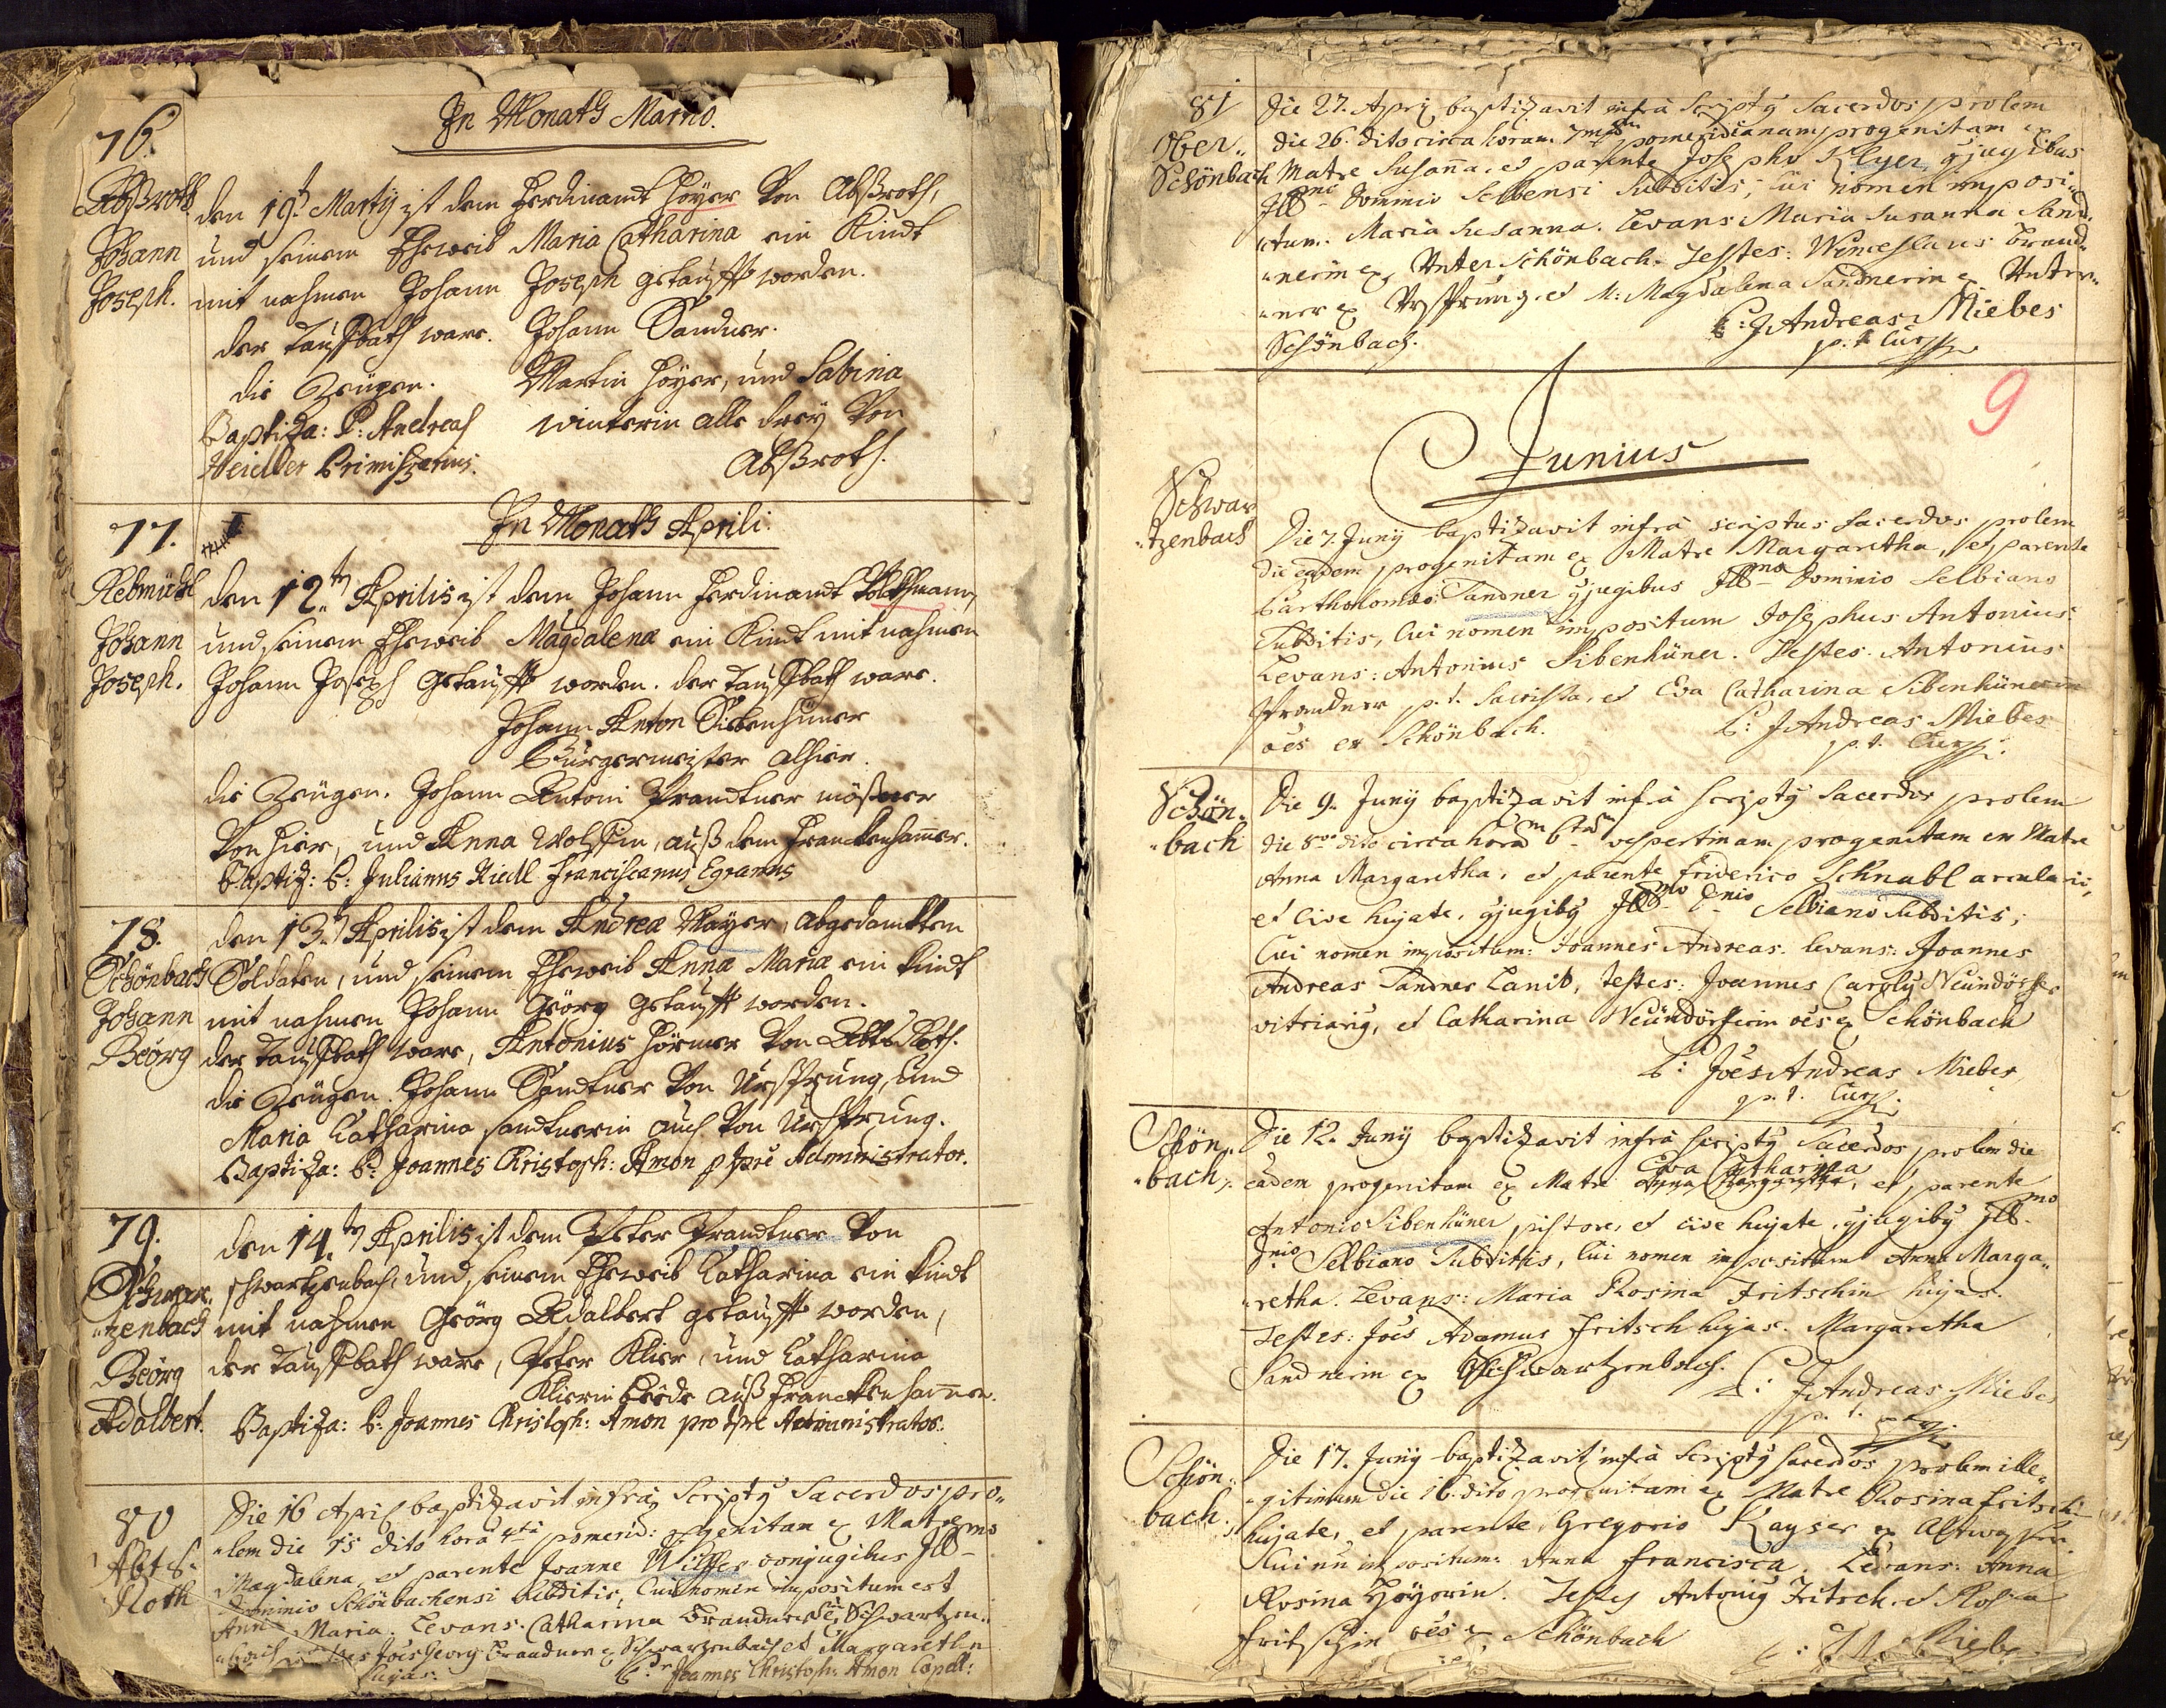 76.
In Monath Martio.
Abßroth
Johann
Joseph.
den 19t Martij ist dem Ferdinandt Höyer Von Abßroth,
und seinem Eheweib Maria Catharina ein Kindt
mit nahmen Johann Joseph getaufft worden.
der Tauffbath ware. Johann Sandner.
die Zeügen. Martin Höyer, und Sabina
Baptiza: P: Andreas winterin alle dreÿ Von
Heidler Primißerius. Abßroth.
77.
In Monath Aprili.
Rebmüehl
Johann
Joseph.
den 12ten Aprilis ist dem Johann Ferdinandt
und seinem Eheweib Magdalena ein Kindt mit nahmen
Johann Joseph getaufft worden. der Tauffbath ware.
Johann Anton Siebenhüner
Burgermeister alhier.
die Zeügen. Johann Antoni Prandtner mößner
Von hier, und Anna Wolfin, auß dem Franckenhamer.
Baptiz: P: Julianus Riedl Franciscanus Egranus
78.
Schönbach
Johann
Georg
den 13. Aprilis ist dem Andrea Mayer, abgedanckten
Soldaten, und seinem Eheweib Anna Maria ein Kindt
mit nahmen Johann Geörg getaufft worden.
der Tauffbath ware, Antonius Hörner Von Abts Roth.
die Zeügen. Johann Sandtner Von Ursprung, und
Maria Catharina Sandtnerin auch Von Ursprung.
Baptiza: P: Joannes Christoph: Amon p tpre Administrator.
79.
Schwar.
"zenbach
Georg
Adalbert.
den 14.ten Aprilis ist dem Peter Prandtner Von
schwartzenbach, und seinem Eheweib Catharina ein Kindt
mit nahmen Geörg Adalbert getaufft worden,
der Tauffbath ware, Peter Klier, und Catharina
Klierin beede auß Franckenhammer.
Baptiza: P: Joannes Christoph: Amon pro tpre Administrator.
80
Abts-
Roth
Die 16 April baptizavit infra Scriptq Sacerdos pro"
"lem die 15 dito hora 4ta pomerid: genitam ex Matre
Magdalena et parente Joanne conjugibus Illmo
Dominio Schönbachensi subditis, Cui nomen impositum est
Anna Maria. Levans. Catharina Brandnerin Schwartzen"
Joës Georg Brandner ex Schwarzenbach et Margaretha
hujas. P: Joannes Christoph: Amon Capell:
81
Ober"
Schönbach
Die 27. Aprilis baptizavit infra Scriptq Sacerdos prolem
die 26. dito circa horam 7mam pomeridianam progenitam ex
Matre Susanna, et parente Josepho Klyer gjugibus
Illmo Dominio Selbensi Subditis, Cui nomen imposi"
"tum. Maria Susanna. Levans Maria Susanna Sand"
"nerin ex Unter Schönbach. Testes: Wenceslaus Brand"
"ner ex Ursprung, et M: Magdalena Sandnerin ex Unter"
Schönbach. P: J Andreas Miebes
p. t. Cur
9
Junius
Schwar
"tzenbach
Die 7. Junÿ baptizavit infra scriptus Sacerdos prolem
die eadem progenitam ex Matre Margaretha, et parente
Bartholomæo Sandner gjugibus Illmo Dominio Selbiano
Subditis, Cui nomen impositum Josephus Antonius.
Levans: Antonius Sibenhüner. Testes. Antonius
Prandner p. t. Sacrista, et Eva Catharina Sibenhünerin
oës ex Schönbach. P: J Andreas Miebes
p. t. Cur
Schön"
"bach
Die 9. Junÿ baptizavit infra scriptq Sacerdos prolem
die 8va dito circa horam 6tam vespertinam progenitam ex Matre
Anna Margaretha, et parente Friderico Schnabl arculario,
et Cive hujate, gjugibq Illmo Dnio Selbiano Subditis,
Cui nomen impositum: Joannes Andreas. Levans: Joannes
Andreas Sandner Lanio, Testes: Joannes Carolq Neündörffer
vitriariq, et Catharina Neündörfferin oës ex Schönbach
P: Joës Andreas Miebes
p. t. Cur
Schön"
"bach
Die 12. Junÿ baptizavit infra scriptq Sacerdos prolem die
Eva Catharina
eadem progenitam ex Matre Anna Margaretha, et parente
Antonio Sibenhüner pistore, et cive hujate, gjugibq Illmo
Dnio Selbiano Subditis, Cui nomen impositum Anna Marga"
"retha. Levans: Maria Rosina Fritschin hujas.
Testes: Joës Adamus Fritsch hujas. Margaretha
Sandnerin ex Schwartzenbach.
P: J Andreas Miebes
p. t. Cur
Schön"
bach
Die 17. Junÿ baptizavit infra Scriptq Sacerdos prolem ille"
"gitimam die 16. dito progenitam ex Matre Rosina Fritschin
hujate, et parente Gregorio Kayser ex
Cui nn impositum: Anna Francisca. Levans: Anna
Rosina Höyerin. Testes Antoniq Fritsch et Rosina
Fritschin oës ex Schönbach
P: J A Miebes